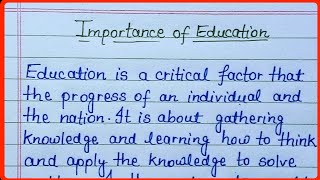 Importance of Education
Education is a critical factor that
the progress of an individual and
the nation. It is about gathering
knowledge and learning how to think
and apply the knowledge to solve